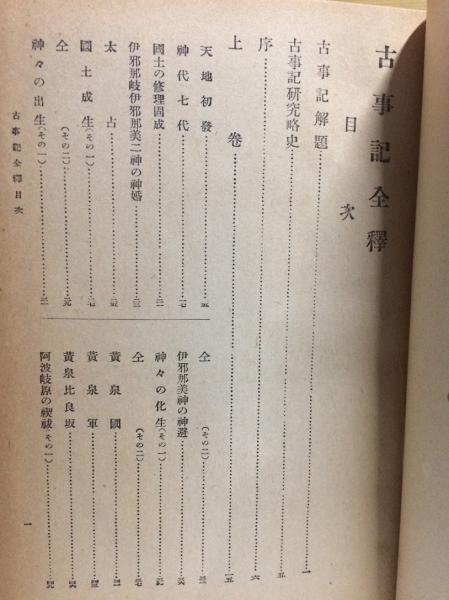 古事記全釋
目次
古事記解題……一
古事記研究略史……五
序……六
上卷……一五
天地初發
神代七代……一七
國土の修理固成
伊邪那岐伊邪那美二神の神婚……二三
太占……二五
國土成生(その一)……二七
仝(その二)……二九
神々の出生(その一)
仝(その二)
伊邪那美神の神避
神々の化生(その一)
仝(その二)
黃泉國
黃泉軍
黃泉比良坂
阿波岐原の禊祓(その一)
古事記全釋目次
一